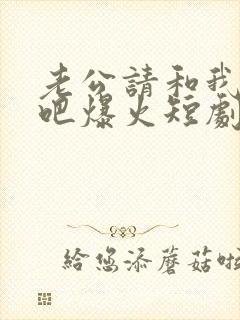 老公請和我
吧爆火短劇
給您添蘑菇啦